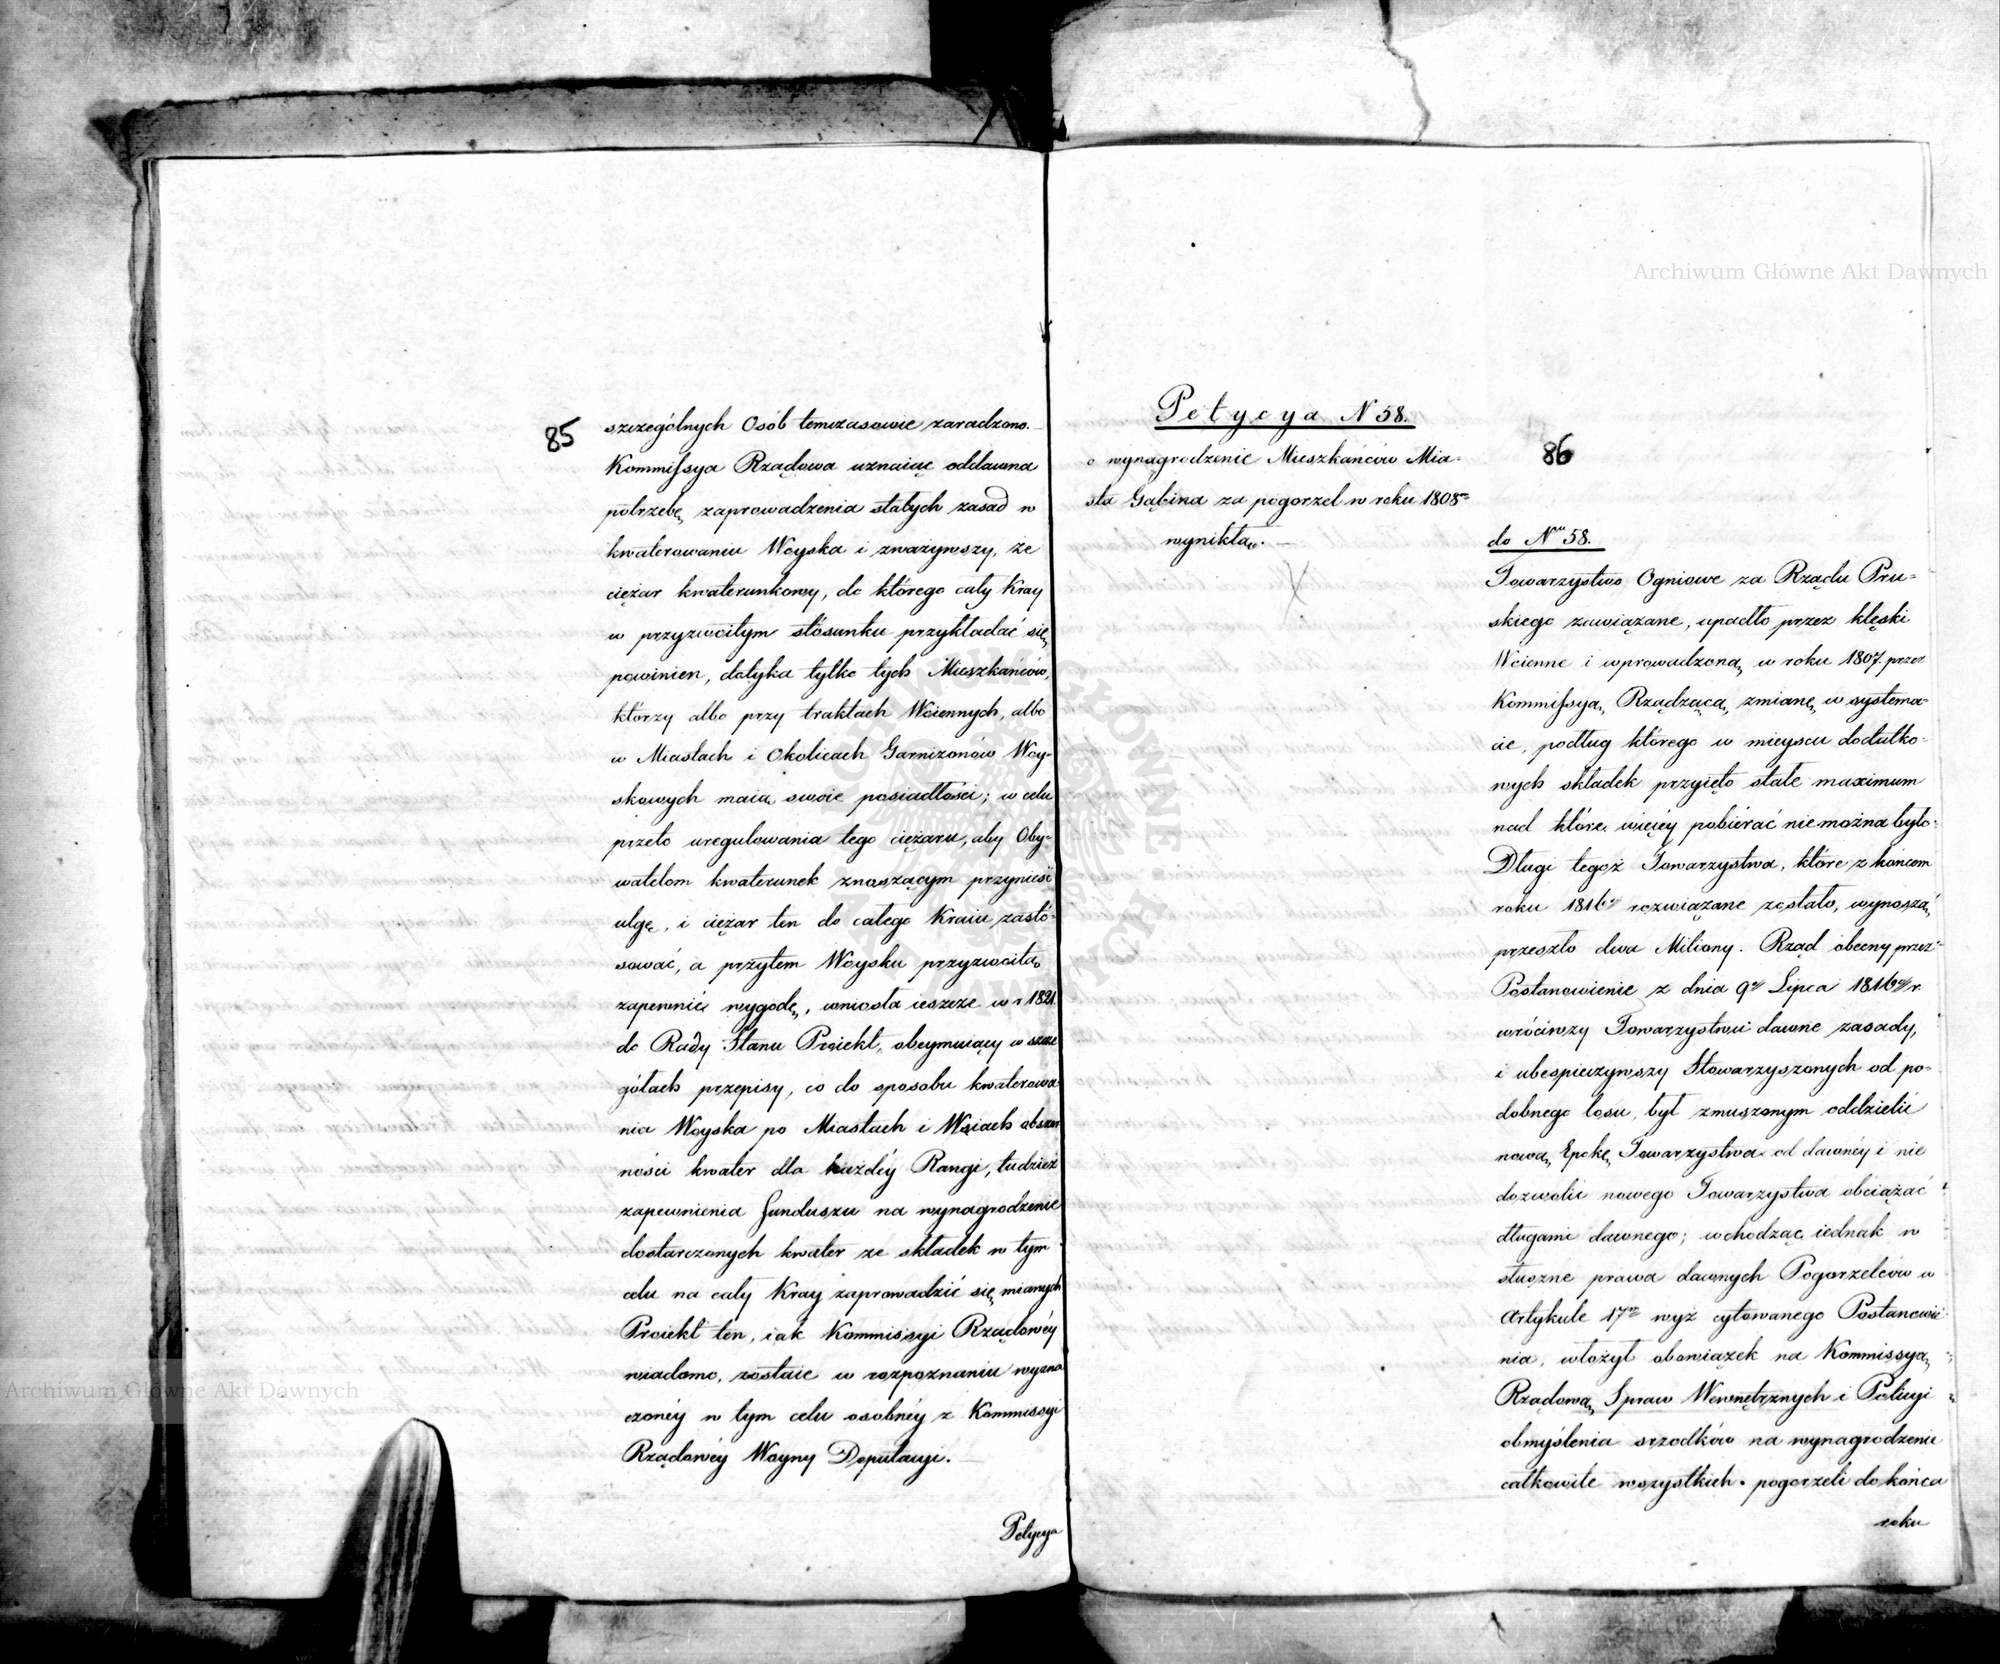 85
szczególnych Osób temczasowie zaradzono.
Kommissya Rządowa uznaiąc oddawna
potrzebę zaprowadzenia stałych zasad w
kwaterowaniu Woyska i zważywszy, że
ciężar kwaterunkowy, do którego cały Kray
w przyzwoitym stósunku przykładać się
powinien, dotyka tylko tych Mieszkańców,
którzy albo przy traktach Woiennych, albo
w Miastach i Okolicach Garnizonów Woy-
skowych maią swoie posiadłości; w celu
przeto uregulowania tego ciężaru, aby Oby-
watelom kwaterunek znoszącym przynieść
ulgę, i ciężar ten do całego Kraiu zastó-
sować, a przytem Woysku przyzwoitą
zapewnić wygodę, wniosła ieszcze w r 1821.
do Rady Stanu Proiekt, obeymuiący w szcze
gółach przepisy, co do sposobu kwaterowa
nia Woyska po Miastach i Wsiach obszer
ności kwater dla każdéy Rangi, tudzież
zapewnienia funduszu na wynagrodzenie
dostarczonych kwater ze składek w tym
celu na cały Kray zaprowadzić się mianych
Proiekt ten, iak Kommissyi Rządowéy
wiadomo, zostaie w rozpoznaniu wyzna
czonéy w tym celu osobnéy z Kommissyi
Rządowéy Woyny Deputacyi.
Petycya
Petycya N 58.
o wynagrodzenie Mieszkańców Mia-
sta Gąbina za pogorzel w roku 1808m
wynikłą.
86
do Nru 58.
Towarzystwo Ogniowe za Rządu Pru-
skiego zawiązane, upadło przez klęski
Woienne i wprowadzoną w roku 1807. przez
Kommissyą Rządzącą zmianę w systema-
cie, podług którego w mieyscu dodatko-
wych składek przyięto stałe maximum
nad które więcéy pobierać nie można było.
Długi tegoż Towarzystwa, które z końcem
roku 1816go rozwiązane zostało, wynoszą
przeszło dwa Miliony. Rząd obecny przez
Postanowienie z dnia 9go Lipca 1816go r.
wróciwszy Towarzystwu dawne zasady,
i ubespieczywszy Stowarzyszonych od po-
dobnego losu, był zmuszonym oddzielić
nową Epokę Towarzystwa od dawnéy i nie
dozwolić nowego Towarzystwa obciążać
długami dawnego; wchodząc iednak w
słuszne prawa dawnych Pogorzelców w
Artykule 17m wyż cytowanego Postanowie
nia, włożył obowiązek na Kommissyą
Rządową Spraw Wewnętrznych i Policyi
obmyślenia srzodków na wynagrodzenie
całkowite wszystkich pogorzeli do końca
roku
Archiwum Główne Akt Dawnych
Archiwum Główne Akt Dawnych